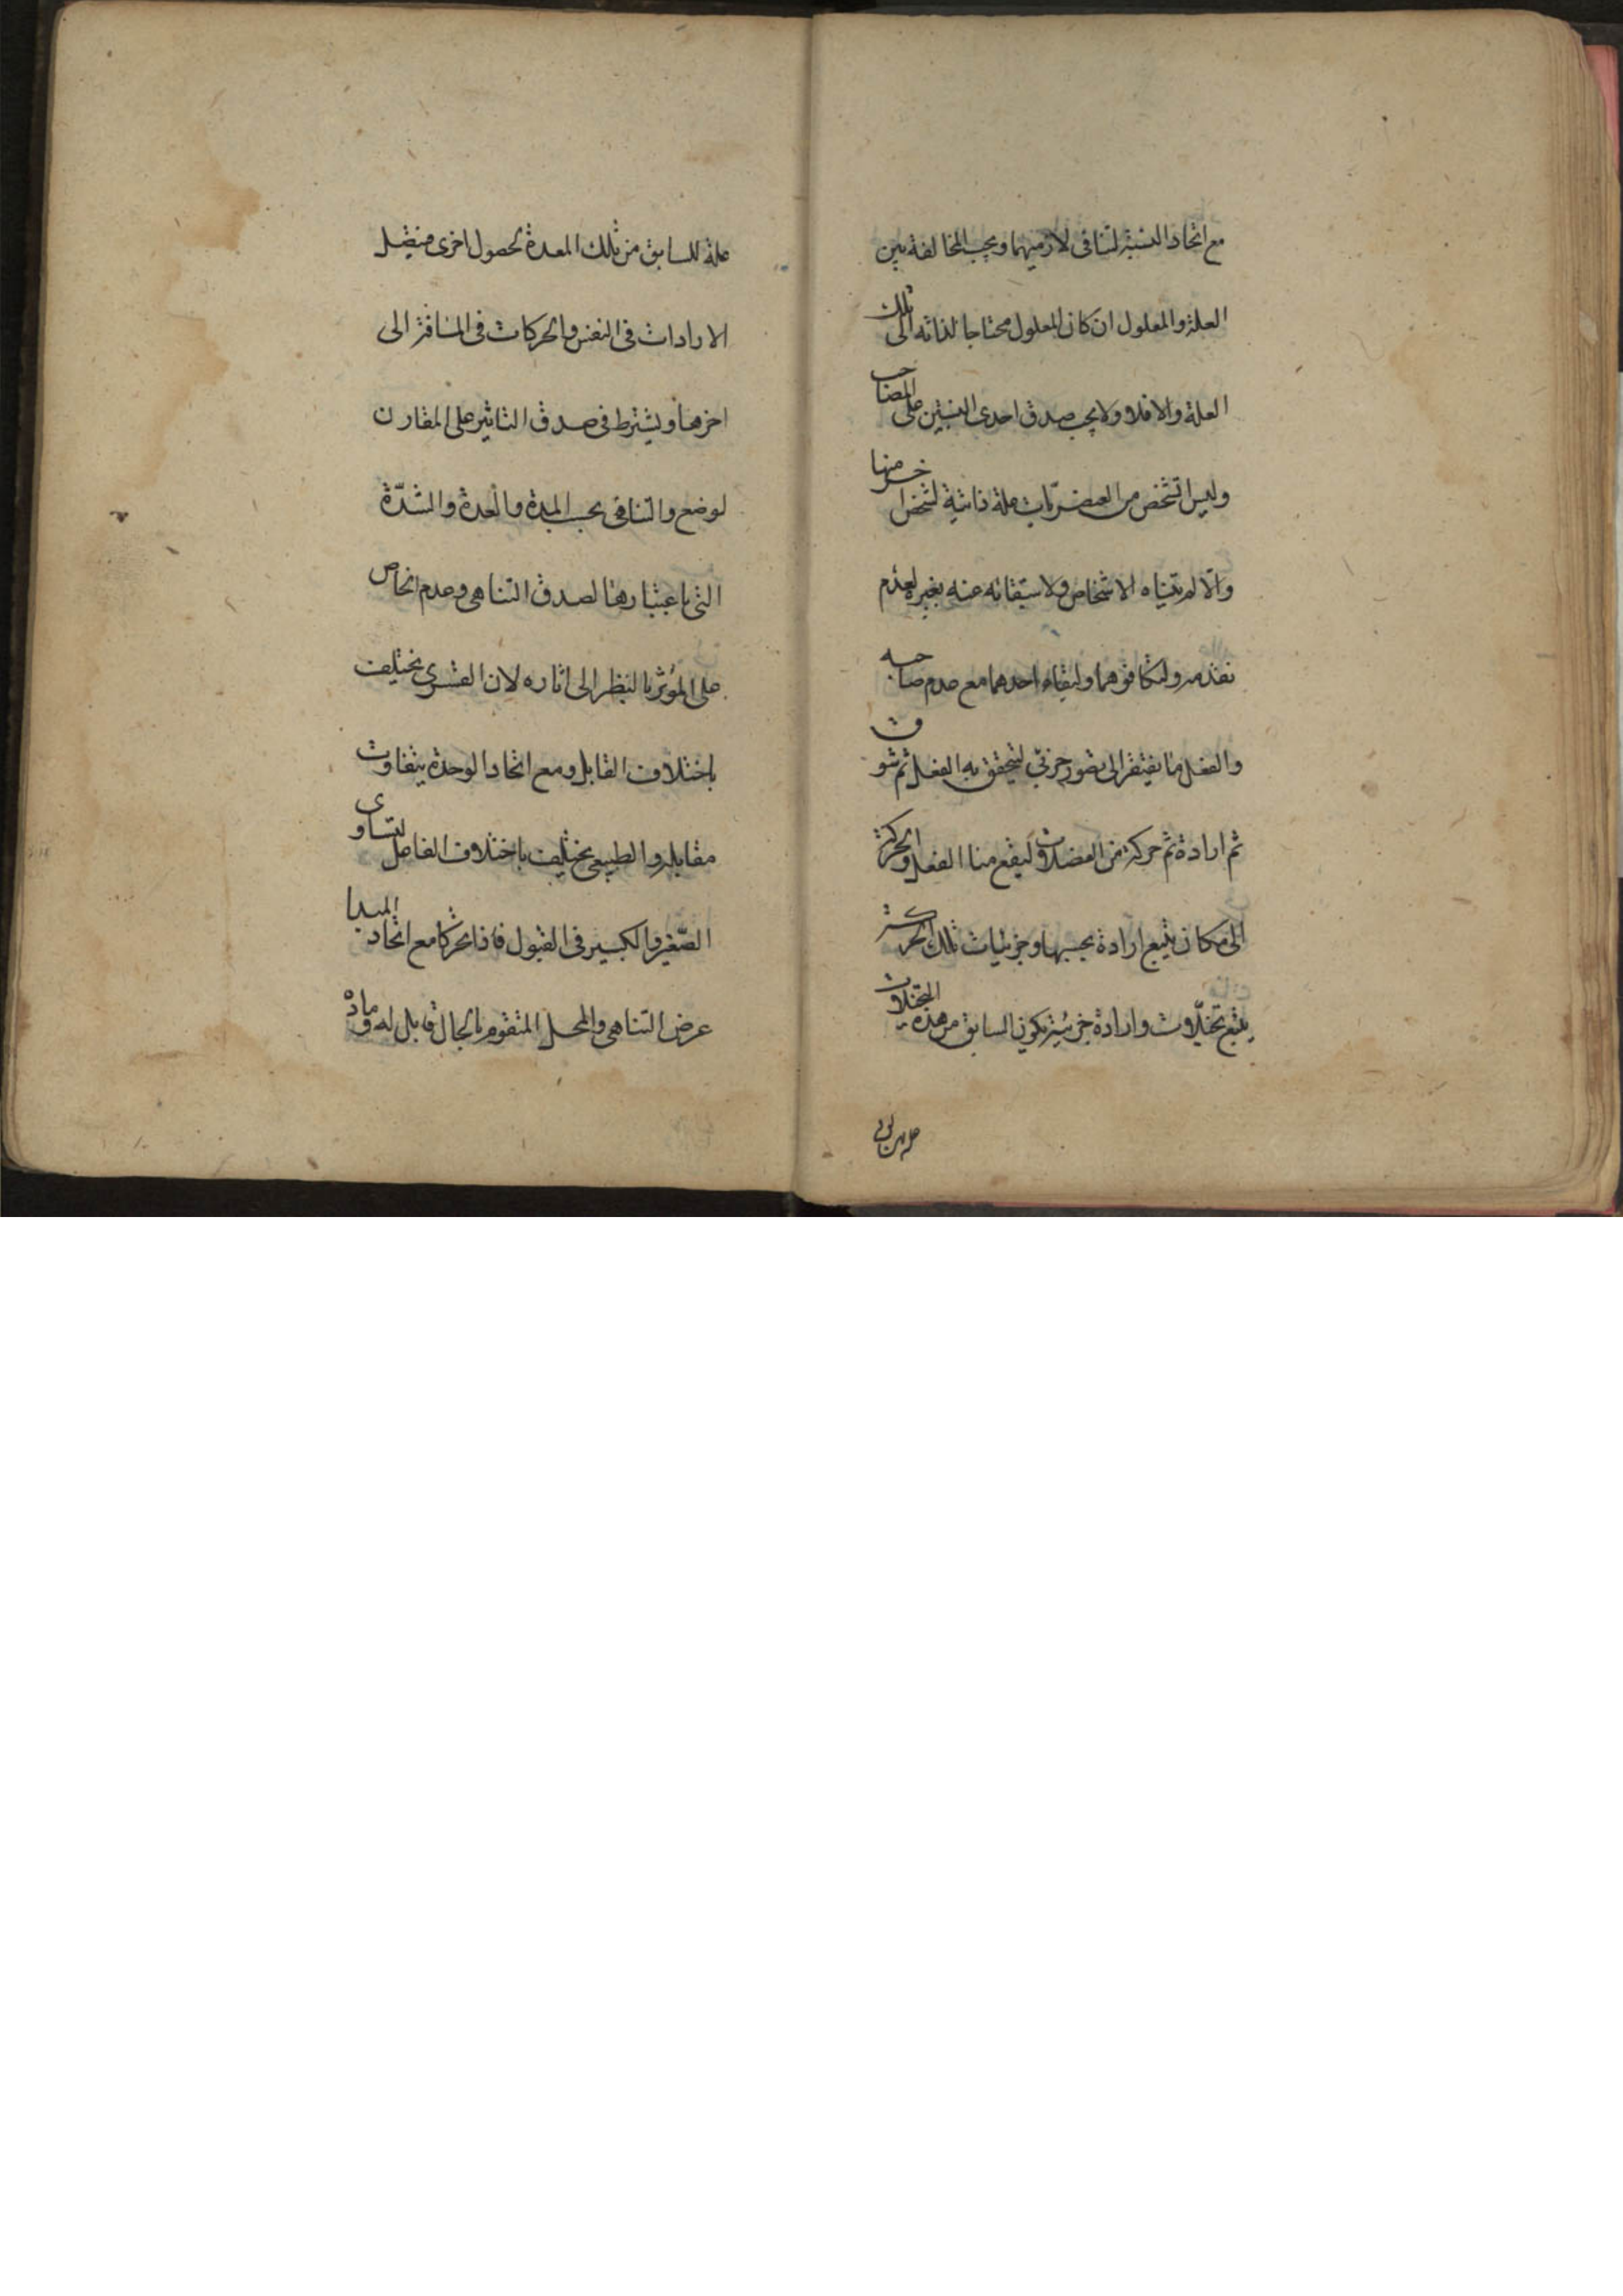 مع اتحاد النسبة لتنافى لازميهما ويجب المخالفة بين
العلة والمعلول ان كان المعلول محتاجا لذاته الى تلك
العلة والا فلا ولا يجب صدق احدى النسبتين على المصاحب
وليس الشخص من العنصريات علة ذاتية لشخص اخر منها
والا لم تتناه الاشخاص ولاستغنائه عنه بغيره لعدم
تقدمه ولتكافؤهما ولبقاء احدهما مع عدم صاحبه
والفعل منا يفتقر الى تصور جزئى ليتحقق به الفعل ثم شوق
ثم ارادة ثم حركة من العضلات ليقع منا الفعل والحركة
الى مكان يتبع ارادة بحسبها وجزئيات تلك الحركة
يتبع تخيلات وارادة جزئية يكون السابق من هذه التخيلات
علة للسابق من تلك المعدة لحصول اخرى فيتصل
الارادات فى النفس والحركات فى المسافة الى
اخرها ويشترط فى صدق التاثير على المقارن
لوضع والتناهى بحسب المدة والعدة والشدة
التى باعتبارها لصدق التناهى وعدم الخاص
على المؤثر بالنظر الى اثاره لان القسرى يختلف
باختلاف القابل ومع اتحاد الوحدة يتفاوت
مقابله والطبيعى يختلف باختلاف الفاعل لتساوى
الصغير والكبير فى القبول فاذا تحركا مع اتحاد المبدا
عرض التناهى والمحل المتقوم بالحال قابل له ومادة